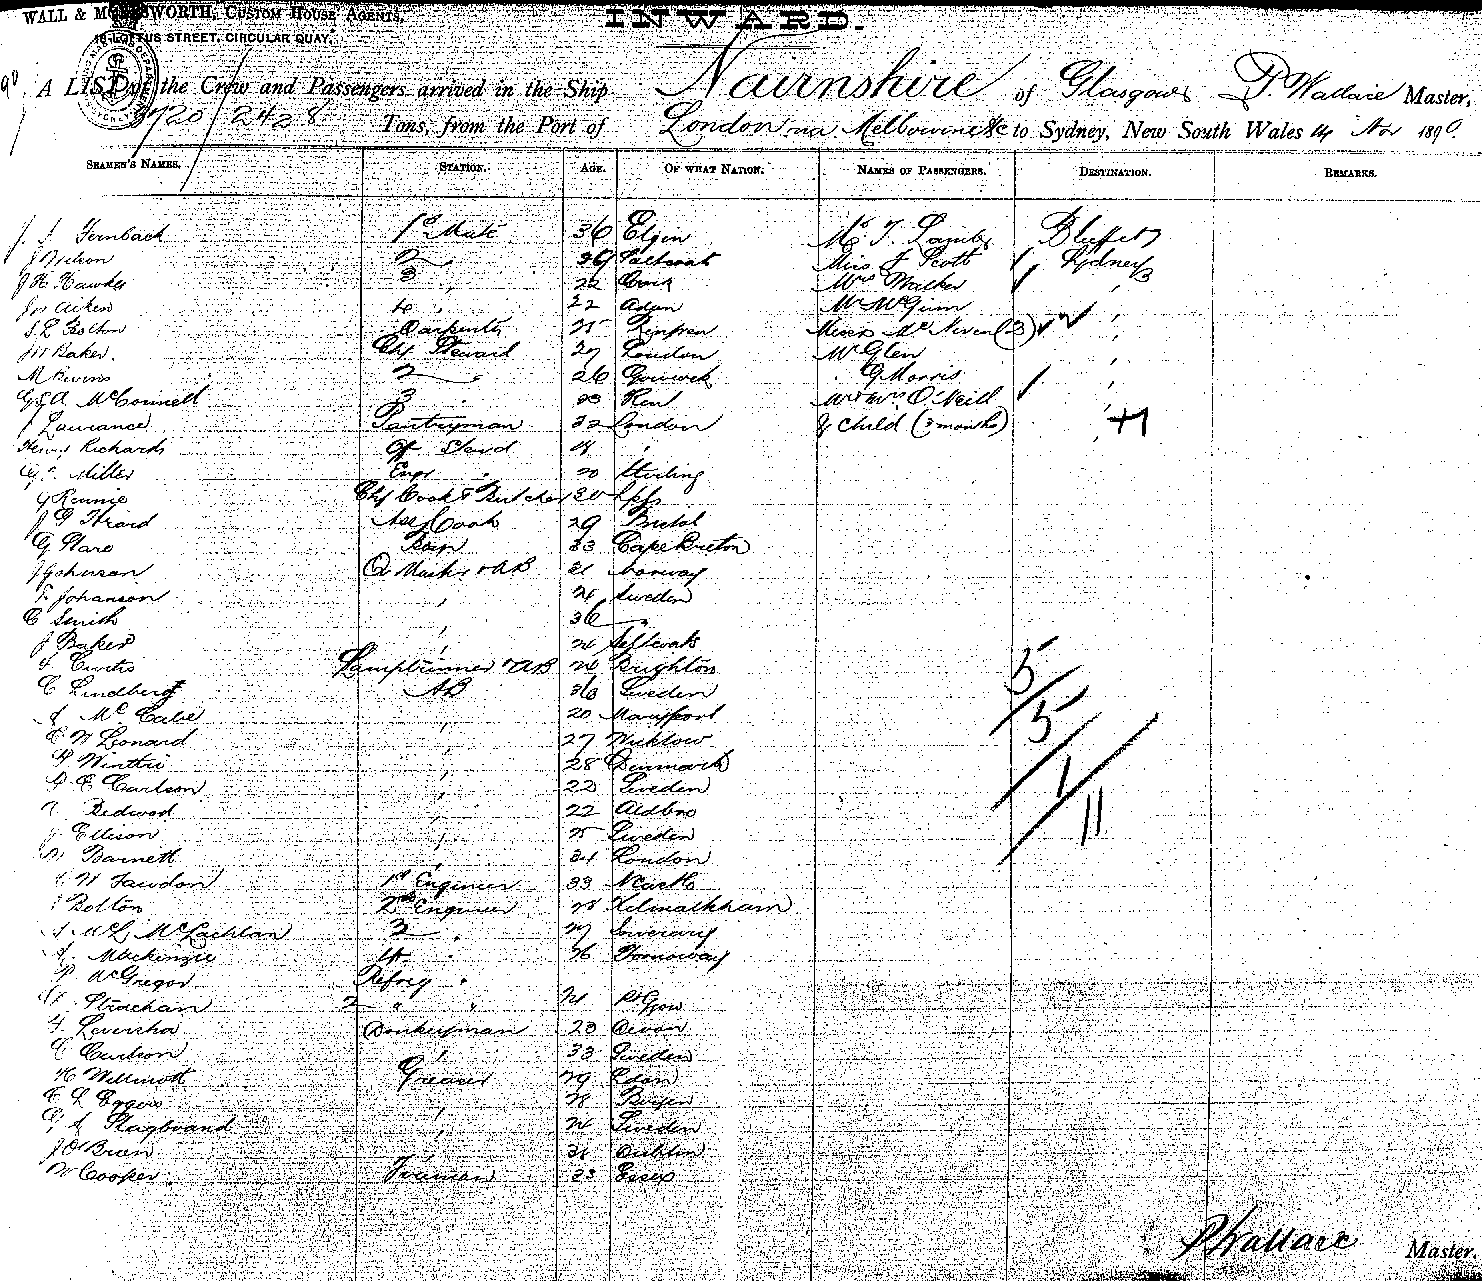 WALL & CUSTOM HOUSE AGENTS,
LOFTUS STREET, CIRCULAR QUAY.
INWARD.
A LIST of the Crew and Passengers arrived in the Ship Nairnshire of Glasgow P Wallace Master,
3720 / 2428 Tons, from the Port of London via Melbourne &c to Sydney, New South Wales 14 Nov 1890.
SEAMEN'S NAMES. STATION. AGE. OF WHAT NATION. NAMES OF PASSENGERS. DESTINATION. REMARKS.
Fernback 1st Mate 36 Elgin Mr T. Lamb Bluff
J Wilson 2 " Saltcoats Miss J Scott Sydney
J H Hawkes 3 " 22 Cork Mrs Walker "
Jas Aiken 4 " 22 Mr McGinn "
Carpenter 25 Misses McNiven (3) "
Jn Baker. Chf Steward 27 London Mr Glen "
M Bivens 2 " 26 G Morris "
McConnell 3 " Kent Mr & Mrs O'Neill "
Lawrance Pantryman 32 London & child (3 months) "
Henry Richards Off Stewd "
Miller Engr " 20 Stirling
G Rennie Chf Cook & Butcher 30
J G Heard Ass Cook 29 Bristol
G Hare Bosn 33 Cape Breton
J Johnson Q Master & AB 21 Norway
F Johanson " 24 Sweden
C Smith " 36 "
J Baker " 24
F. Curtis Lamptrimmer & AB 24 Brighton
C Lindberg AB 36 Sweden
McCabe " 20 Maryport
C W Leonard " 27 Wicklow
Winther " 28 Denmark
C Carlson " 22 Sweden
Bedwod " 22 Aldbro
J Ellison " 25 Sweden
Barnett " 34 London
W Fawdon 1st Engineer 33 Ncastle
Bolton 2nd Engineer 28
McL McLachlan 3 " 27 Inveraray
A. Mackenzie 4 " 26
P. McGregor Refrig "
Strachan 2 " " 21
F. Leversha Donkeyman 23 Devon
C Carlson " 33 Sweden
H Willmott Greaser 29
C L Eggers " 28 Bergen
" 24 Sweden
J O'Brien " Dublin
W Cooper. Fireman 23 Essex
5
5
1
11
P Wallace Master.